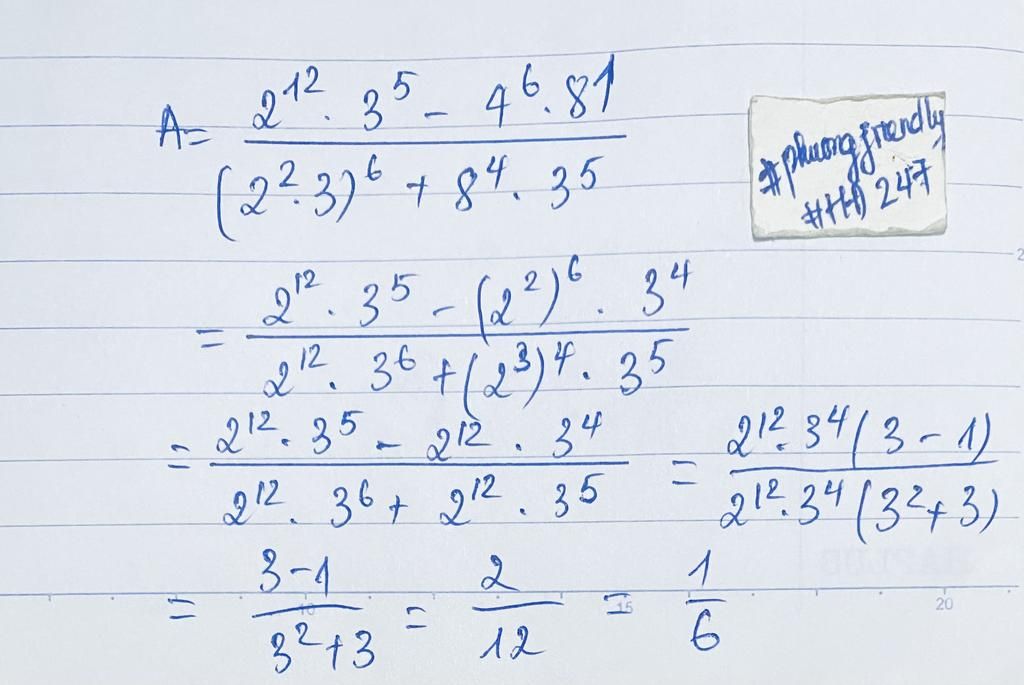 A = \frac{2^{12} \cdot 3^5 - 4^6 \cdot 81}{(2^2 \cdot 3)^6 + 8^4 \cdot 3^5}
#phuongfriendly
#HD 247
= \frac{2^{12} \cdot 3^5 - (2^2)^6 \cdot 3^4}{2^{12} \cdot 3^6 + (2^3)^4 \cdot 3^5}
= \frac{2^{12} \cdot 3^5 - 2^{12} \cdot 3^4}{2^{12} \cdot 3^6 + 2^{12} \cdot 3^5} = \frac{2^{12} \cdot 3^4 (3 - 1)}{2^{12} \cdot 3^4 (3^2 + 3)}
= \frac{3 - 1}{3^2 + 3} = \frac{2}{12} = \frac{1}{6}
10 15 20